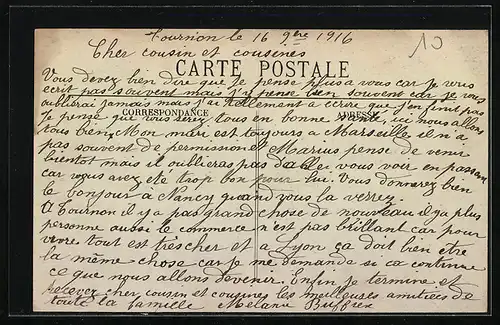 Tournon le 16 9bre 1916
10
Cher cousin et cousines
CARTE POSTALE
Vous devez bien dire que je pense plus a vous car je vous
ecrit pas souvent mais j'y pense bien souvent car je vous
oublierai jamais mais j'ai tellement a ecrire que j'en finit pas
CORRESPONDANCE
ADRESSE
Je pense que vous serez tous en bonne santé, ici nous allons
tous bien, Mon mari est toujours a Marseille il n'a
pas souvent de permission et Marius pense de venir
bientot mais il oublieras pas d'aller vous voir en passant
car vous avez ete trop bon pour lui. Vous donnerez bien
le bonjour a Nancy quand vous la verrez.
A Tournon il y a pas grand chose de nouveau il y a plus
personne aussi le commerce n'est pas brillant car pour
vivre tout est très cher et a Lyon ça doit bien etre
la même chose car je me demande si ça continue
ce que nous allons devenir. Enfin je termine et
recevez cher cousin et cousines les meilleures amitiées de
toute la famille Melanie